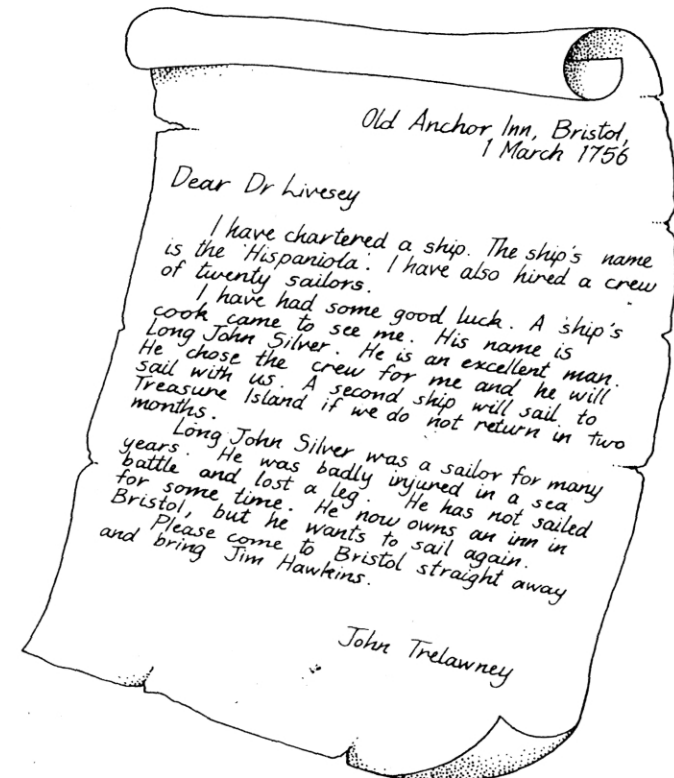 Old Anchor Inn, Bristol,
1 March 1756
Dear Dr Livesey
I have chartered a ship. The ship's name
is the 'Hispaniola'. I have also hired a crew
of twenty sailors.
I have had some good luck. A ship's
cook came to see me. His name is
Long John Silver. He is an excellent man.
He chose the crew for me and he will
sail with us. A second ship will sail to
Treasure Island if we do not return in two
months.
Long John Silver was a sailor for many
years. He was badly injured in a sea
battle and lost a leg. He has not sailed
for some time. He now owns an inn in
Bristol, but he wants to sail again.
Please come to Bristol straight away
and bring Jim Hawkins.
John Trelawney